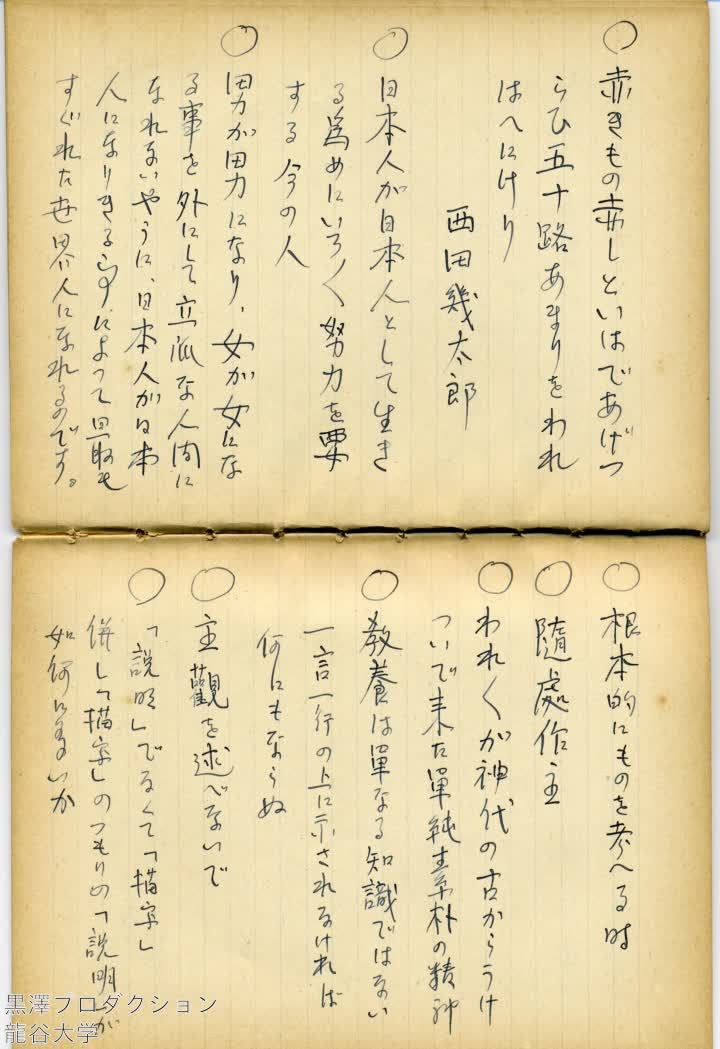 ○赤きもの赤しといはであげつ
らひ五十路あまりをわれ
はへにけり
西田幾太郎
○日本人が日本人として生き
る為めにいろ〱努力を要
する今の人
○男が男になり、女が女にな
る事を外にして立派な人間に
なれないやうに、日本人が日本
人になりきる事によって最も
すぐれた世界人になれるのです。
○根本的にものを考へる時
○随處作主
○われ〱が神代の古からうけ
ついで来た單純素朴の精神
○教養は單なる知識ではない
一言一行の上に示されなければ
何にもならぬ
○主觀を述べないで
○「説明」でなくて「描寫」
併し「描寫」のつもりの「説明」が
如何に多いか
黒澤プロダクション
龍谷大学